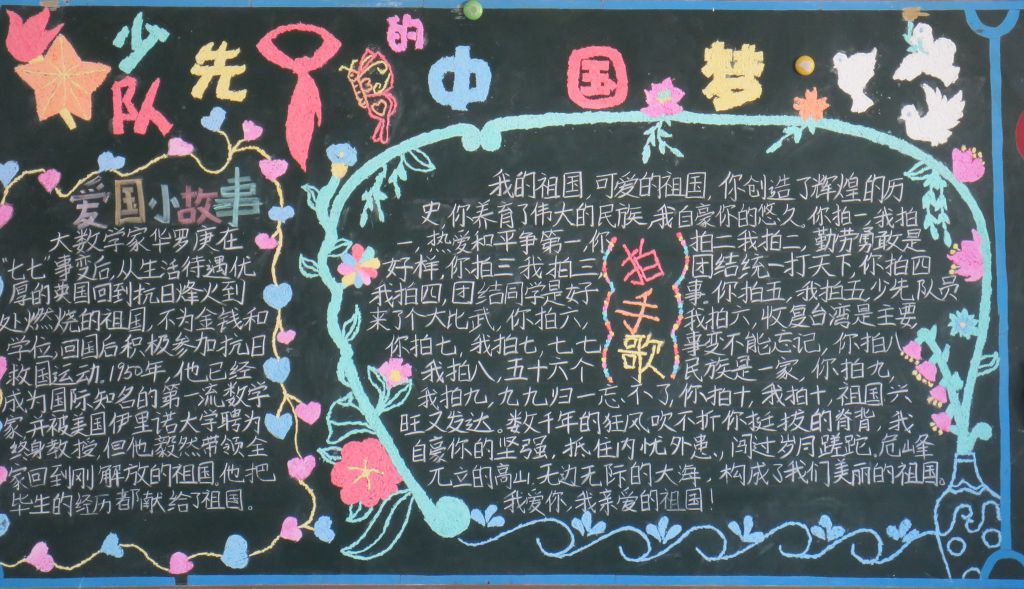 少先队的中国梦
爱国小故事
大数学家华罗庚在
"七七"事变后,从生活待遇优
厚的英国回到抗日烽火到
处燃烧的祖国,不为金钱和
学位,回国后积极参加抗日
救国运动.1950年,他已经
成为国际知名的第一流数学
家,并被美国伊里诺大学聘为
终身教授,但他毅然带领全
家回到刚解放的祖国.他把
毕生的经历都献给了祖国。
拍手歌
我的祖国,可爱的祖国,你创造了辉煌的历
史,你养育了伟大的民族,我自豪你的悠久,你拍一,我拍
一,热爱和平争第一,你拍二我拍二,勤劳勇敢是
好样,你拍三我拍三,团结统一打天下,你拍四
我拍四,团结同学是好事.你拍五,我拍五,少先队员
来了个大比武,你拍六,我拍六,收复台湾是主要
你拍七,我拍七,七七事变不能忘记,你拍八
,我拍八,五十六个民族是一家,你拍九,
我拍九,九九归一忘不了,你拍十,我拍十,祖国兴
旺又发达。数千年的狂风吹不折你挺拔的脊背,我
自豪你的坚强,抵住内忧外患,闯过岁月蹉跎,危峰
兀立的高山,无边无际的大海,构成了我们美丽的祖国。
我爱你,我亲爱的祖国!